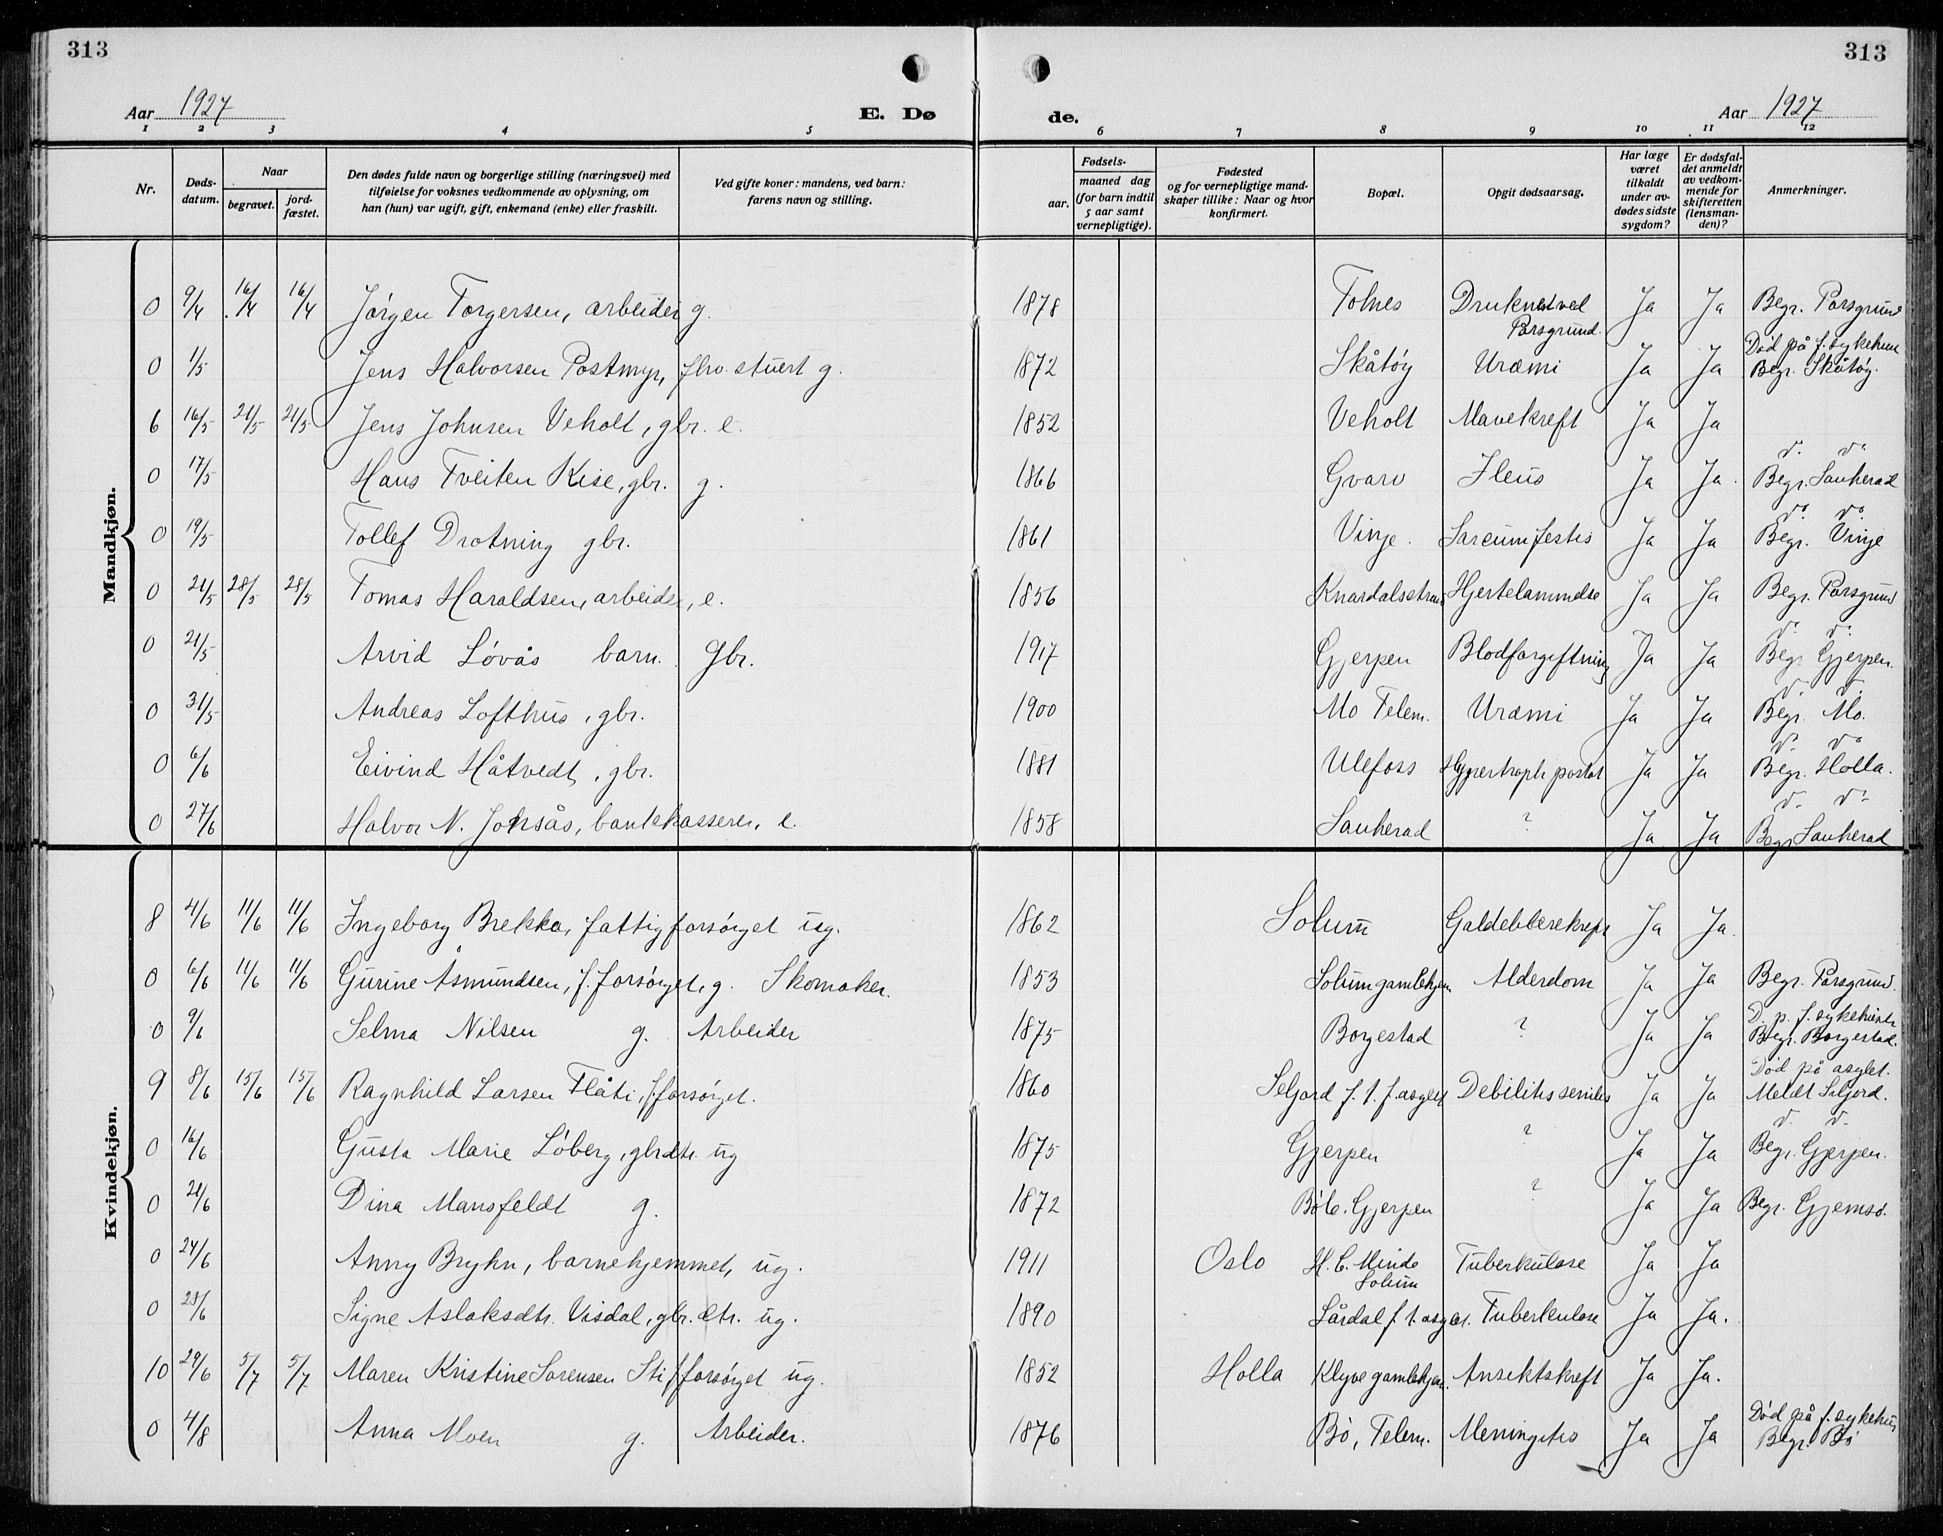 313
313
Aar 1927
E. Dø
de.
Aar 1927
1 2 3 4 5 6 7 8 9 10 11 12
Nr.
Døds-
datum.
Naar
begravet.
jord-
fæstet.
Den dødes fulde navn og borgerlige stilling (næringsvei) med
tilføielse for voksnes vedkommende av oplysning, om
han (hun) var ugift, gift, enkemand (enke) eller fraskilt.
Ved gifte koner: mandens, ved barn:
farens navn og stilling.
Fødsels-
aar.
maaned dag
(for barn indtil
5 aar samt
vernepligtige).
Fødested
og for vernepligtige mand-
skaper tillike: Naar og hvor
konfirmert.
Bopæl.
Opgit dødsaarsag.
Har læge
været
tilkaldt
under av-
dødes sidste
sygdom?
Er dødsfal-
det anmeldt
av vedkom-
mende for
skifteretten
(lensman-
den)?
Anmerkninger.
Mandkjøn.
0 9/4 16/4 16/4 Jørgen Torgersen, arbeider g. 1878 Tolnes Druknet ved Porsgrund. Ja Ja Begr. Porsgrund
0 1/5 Jens Halvorsen Postmyr, fhv. stuert g. 1872 Skåtøy Uræmi Ja Ja Død på f. sykehus Begr. Skåtøy.
6 16/5 21/5 21/5 Jens Johnsen Veholt, gbr. e. 1852 Veholt Mavekreft Ja Ja
0 17/5 Hans Tveiten Kise, gbr. g. 1866 Gvarv Ileus Ja Ja. d. d. Begr. Sauherad
0 19/5 Tollef Drotning gbr. 1861 Vinje. Ja Ja d. d. Begr. Vinje
0 21/5 28/5 28/5 Tomas Haraldsen, arbeider, e. 1856 Knardalsstrand Hjertelammelse Ja Ja Begr. Porsgrund
0 21/5 Arvid Løvås barn. Gbr. 1917 Gjerpen Blodforgiftning Ja Ja d. d. Begr. Gjerpen.
0 31/5 Andreas Lofthus, gbr. 1900 Mo Telem. Uræmi Ja Ja d. d. Begr. Mo.
0 6/6 Eivind Håtvedt, gbr. 1881 Ulefoss Hypertroph postat Ja Ja d. d. Begr. Holla.
0 27/6 Halvor N. Jonsås, bankkasserer, e. 1858 Sauherad ? Ja Ja d. d. Begr. Sauherad
Kvindekjøn.
8 4/6 11/6 11/6 Ingeborg Brekka, fattigforsørget ug. 1862 Solum Galdeblærekreft Ja Ja.
0 6/6 11/6 11/6 Gurine Asmundsen, f. forsørget, g. Skomaker. 1853 Solum gamlehjem Alderdom Ja Ja Begr. Porsgrund.
0 9/6 Selma Nilsen g. Arbeider 1875 Borgestad ? Ja Ja D. p. f. sykehuset Begr. Borgestad.
9 8/6 15/6 15/6 Ragnhild Larsen Flåti, f. forsørget. 1860 Seljord f. t. f. asylet Debilitis senilis Ja Ja Død på asylet. Meldt Seljord.
0 16/6 Gusta Marie Løberg, gbrdtr. ug 1875 Gjerpen ? Ja Ja d. d. Begr. Gjerpen.
0 21/6 Dina Mansfeldt g. 1872 Bøle. Gjerpen ? Ja Ja Begr. Gjemsø.
0 24/6 Anny Bryhn, barnehjemmet, ug. 1911 Oslo H. C. Minde Solum Tuberkulose Ja Ja
0 28/6 Signe Aslaksdtr. Visdal, gbr. dtr. ug. 1890 Lårdal f. t. asylet. Tuberkulose Ja Ja.
10 29/6 5/7 5/7 Maren Kristine Sørensen Sti f. forsørget ug. 1852 Holla Klyve gamlehjem. Ansiktskreft Ja Ja.
0 4/8 Anna Moen g. Arbeider. 1876 Bø, Telem. Meningitis Ja Ja Død på f. sykehus Begr. Bø